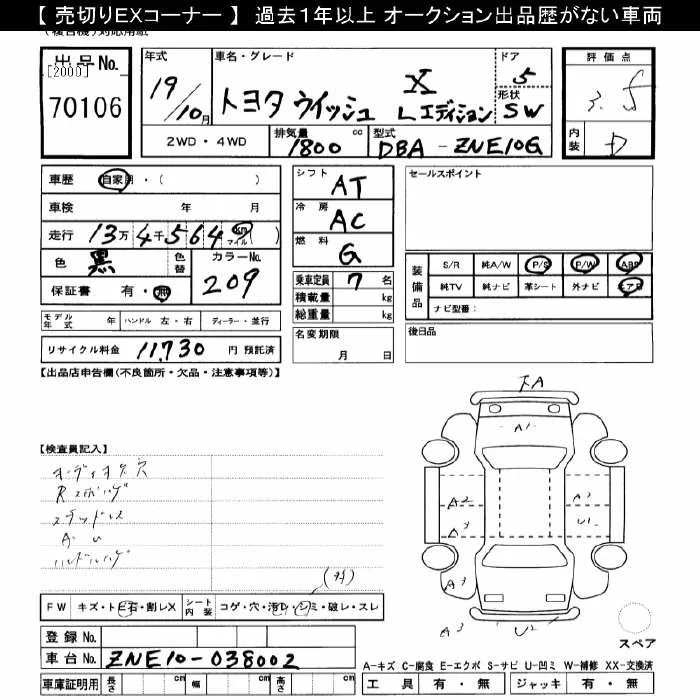 【 売切りEXコーナー 】 過去1年以上 オークション出品歴がない車両
出品No.
[2000]
70106
年式
19/10月
車名・グレード
X
トヨタ ウイッシュ Lエディション
ドア
5
形状
SW
評価点
3.5
内装
D
2WD・4WD
排気量
1800
cc
型式
DBA-ZNE10G
車歴 自家用・( )
車検 年 月
走行 13万4千564 km マイル ( )
色 黒
色替
カラーNo.
209
保証書 有・無
モデル年式 年 ハンドル 左・右 ディーラー・並行
リサイクル料金 11,730 円 預託済
シフト
AT
冷房
AC
燃料
G
乗車定員 7 名
積載量 kg
総重量 kg
名変期限
月 日
セールスポイント
装備品
S/R 純A/W P/S P/W ABS
純TV 純ナビ 革シート 外ナビ エアB
ナビ型号:
後日品
【出品店申告欄(不良箇所・欠品・注意事項等)】
下A
A1
A2
A3
A3
U1
A3
A3
U2
スペア
【検査員記入】
オーディオ欠穴
スタッドレス
A・U
(才)
FW キズ・トビ石・割レX
シート内装
コゲ・穴・汚レ・シミ・破レ・スレ
登録No.
車台No. ZNE10-038002
車庫証明用 長さ cm 幅 cm 高さ cm
A-キズ C-腐食 E-エクボ S-サビ U-凹ミ W-補修 XX-交換済
工具 有・無 ジャッキ 有・無